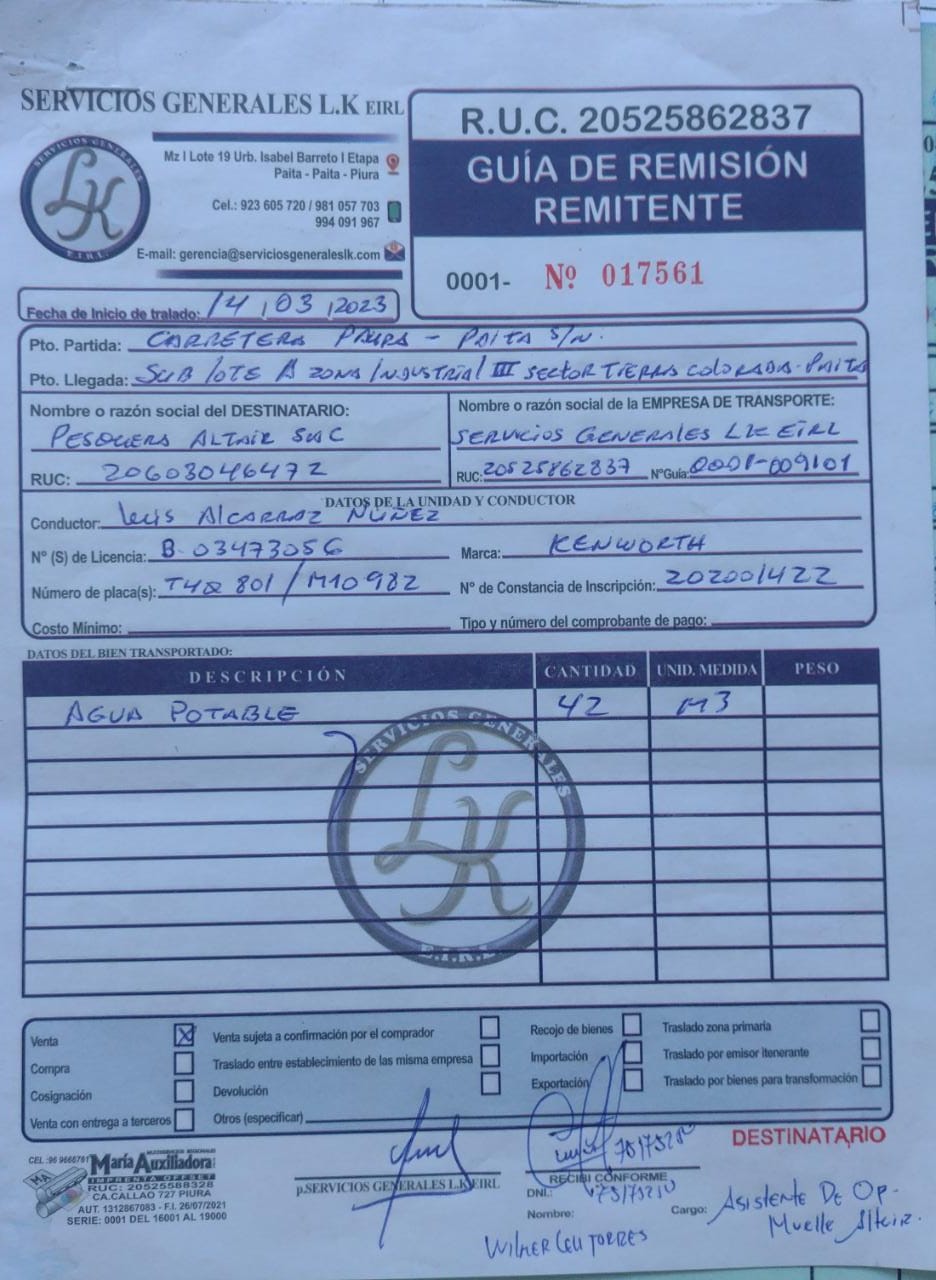 SERVICIOS GENERALES L.K EIRL
SERVICIOS GENERALES
LK
E.I.R.L.
Mz I Lote 19 Urb. Isabel Barreto I Etapa
Paita - Paita - Piura
Cel.: 923 605 720 / 981 057 703
994 091 967
E-mail: gerencia@serviciosgeneraleslk.com
R.U.C. 20525862837
GUÍA DE REMISIÓN
REMITENTE
0001- Nº 017561
Fecha de Inicio de tralado: 14 / 03 / 2023
Pto. Partida: CARRETERA PAITA - PAITA S/N.
Pto. Llegada: SUB LOTE A ZONA INDUSTRIAL III SECTOR TIERRA COLORADA - PAITA
Nombre o razón social del DESTINATARIO:
PESQUERA ALTAIR SAC
RUC: 20603046472
Nombre o razón social de la EMPRESA DE TRANSPORTE:
SERVICIOS GENERALES LK EIRL
RUC: 20525862837 NºGuía: 0001-009101
DATOS DE LA UNIDAD Y CONDUCTOR
Conductor: Luis Alcarraz Núñez
Nº (S) de Licencia: B-03473056
Marca: KENWORTH
Número de placa(s): T4Q 801 / M10 982
Nº de Constancia de Inscripción: 202001422
Costo Mínimo:
Tipo y número del comprobante de pago:
DATOS DEL BIEN TRANSPORTADO:
DESCRIPCIÓN CANTIDAD UNID. MEDIDA PESO
AGUA POTABLE 42 M3
SERVICIOS GENERALES
LK
E.I.R.L
Venta X
Compra
Cosignación
Venta con entrega a terceros
Venta sujeta a confirmación por el comprador
Traslado entre establecimiento de las misma empresa
Devolución
Otros (especificar)
Recojo de bienes
Importación
Exportación
Traslado zona primaria
Traslado por emisor itenerante
Traslado por bienes para transformación
DESTINATARIO
María Auxiliadora
IMPRENTA OFFSET
RUC: 20525588328
CA.CALLAO 727 PIURA
AUT. 1312867083 - F.I. 26/07/2021
SERIE: 0001 DEL 16001 AL 19000
p.SERVICIOS GENERALES L.K EIRL
RECIBI CONFORME
DNI.:
Nombre:
Wilmer Celi Torres
Cargo: Asistente De Op.
Muelle Altair.